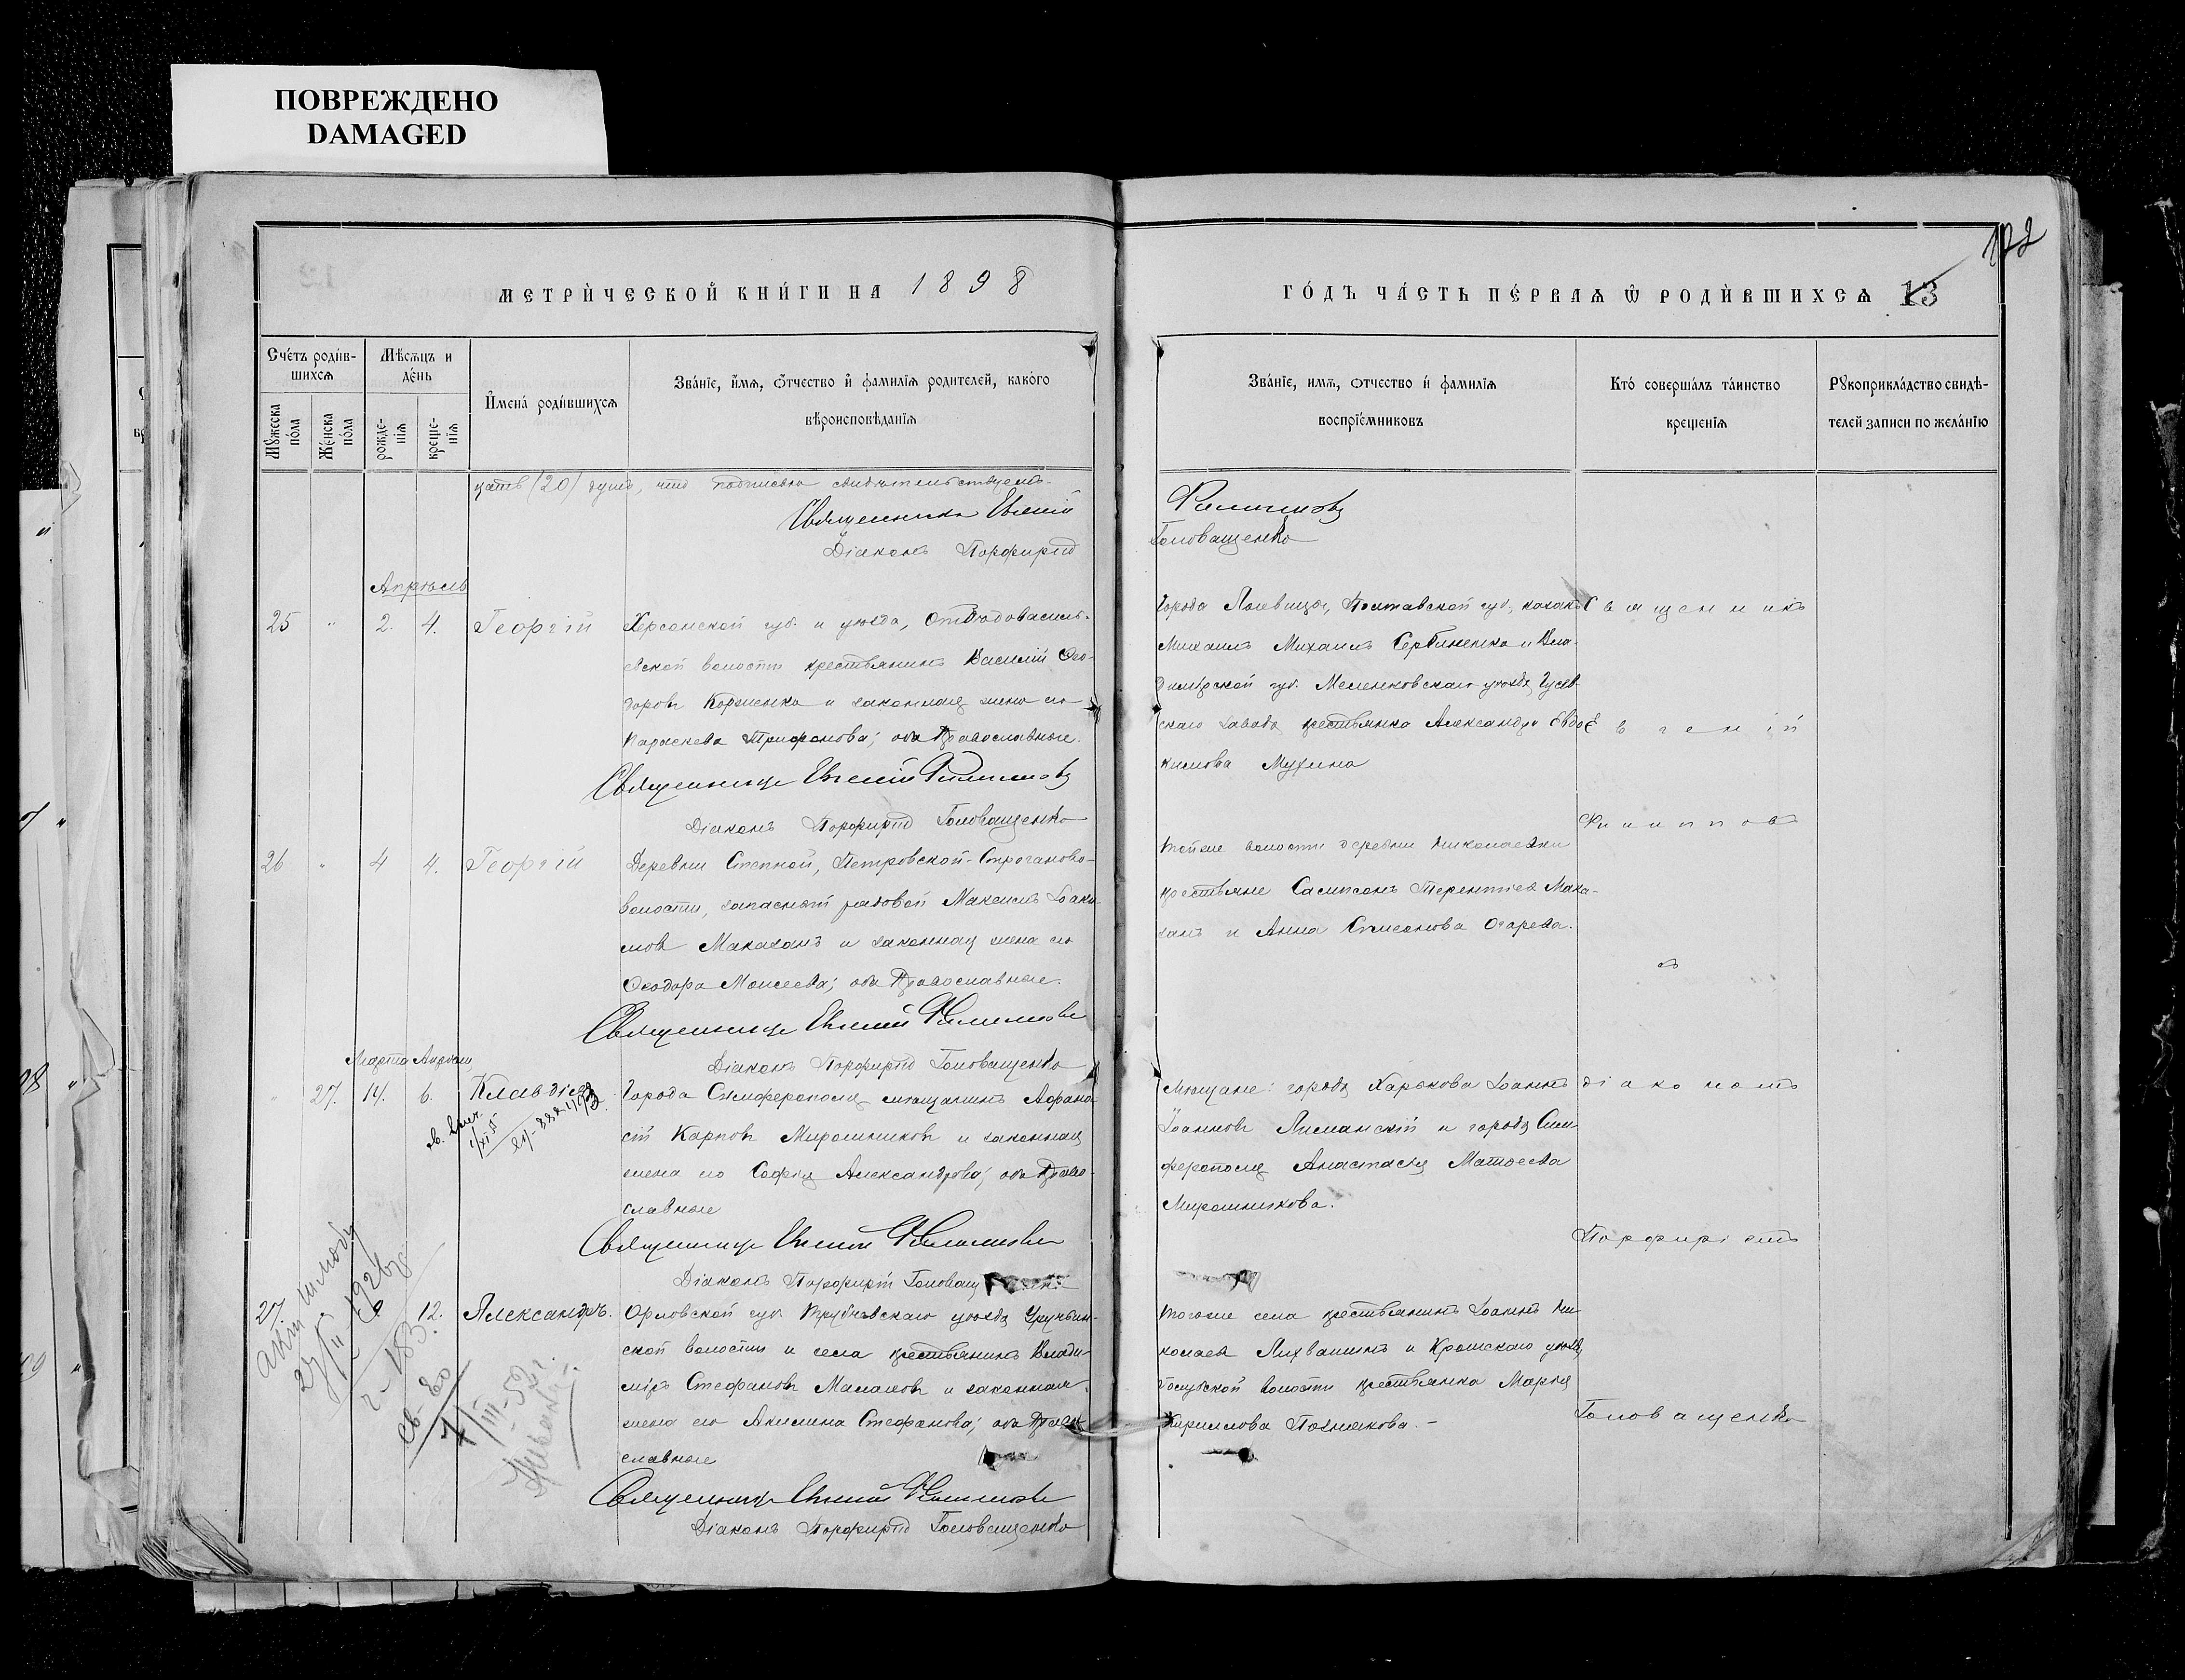 ПОВРЕЖДЕНО
DAMAGED
122
МЕТРИЧЕСКОЙ КНИГИ НА 1898
ГОДЪ ЧАСТЬ ПЕРВАЯ Ѿ РОДИВШИХСЯ 13
Счетъ родив-
шихся
Мужеска
пола
Женска
пола
Мѣсяцъ и
день
рожде-
нія
креще-
нія
Имена родившихся
Званіе, имя, отчество и фамилія родителей, какого
вѣроисповѣданія
Званіе, имя, отчество и фамилія
воспріемниковъ
Кто совершалъ таинство
крещенія
Рукоприкладство свидѣ-
телей записи по желанію
цать (20) душъ, что подписью свидѣтельствуемъ.
Священникъ Евгеній
Филипповъ
Діаконъ Порфирій
Головащенко
Апрѣль
25 " 2. 4. Георгій
Херсонской губ. и уѣзда,
евской волости крестьянинъ Василій Ѳео-
доровъ и законная жена его
Параскева Трифонова; оба Православные.
Священникъ Евгеній Филипповъ
Діаконъ Порфирій Головащенко
Полтавской губ., козакъ
Михаилъ Сербиненко и Вла-
димірской губ. Меленковскаго уѣзда Гусев-
скаго завода крестьянка Александра Евдо-
кимова Мухина
Священникъ
Евгеній
Филиппов
ъ
26 " 4 4. Георгій
Деревни Степной, Петровской-Строганово-
волости, запасный рядовой Максимъ Іоаки-
мовъ и законная жена его
Ѳеодора Моисеева; оба Православные.
Священникъ Евгеній Филипповъ
Діаконъ Порфирій Головащенко
Той же волости деревни Николаевки
крестьяне Сампсонъ Терентіевъ
и Анна Симеонова Огарева.
Марта Апрѣля
" 27. 14. 6. Клавдія
Города Симферополя мѣщанинъ Аѳана-
сій Карповъ Мирошниковъ и законная
жена его Софія Александрова; оба Право-
славные
Священникъ Евгеній Филипповъ
Діаконъ Порфирій
Мѣщане: города Харькова Іоаннъ
Іоанновъ Лиманскій и города Сим-
ферополя Анастасія Матѳеева
Мирошникова.
Діакономъ
Порфиріемъ
Головащенко
27. 12. Александръ.
Орловской губ. Трубчевскаго уѣзда
ской волости и села крестьянинъ Влади-
міръ Стефановъ Малаховъ и законная
жена его Акилина Стефанова; оба Право-
славные
Священникъ Евгеній Филипповъ
Діаконъ Порфирій Головащенко
Того же села крестьянинъ Іоаннъ Ни-
колаевъ Лихванинъ и Кромскаго уѣзда
волости крестьянка Марія
Кириллова Познякова. -